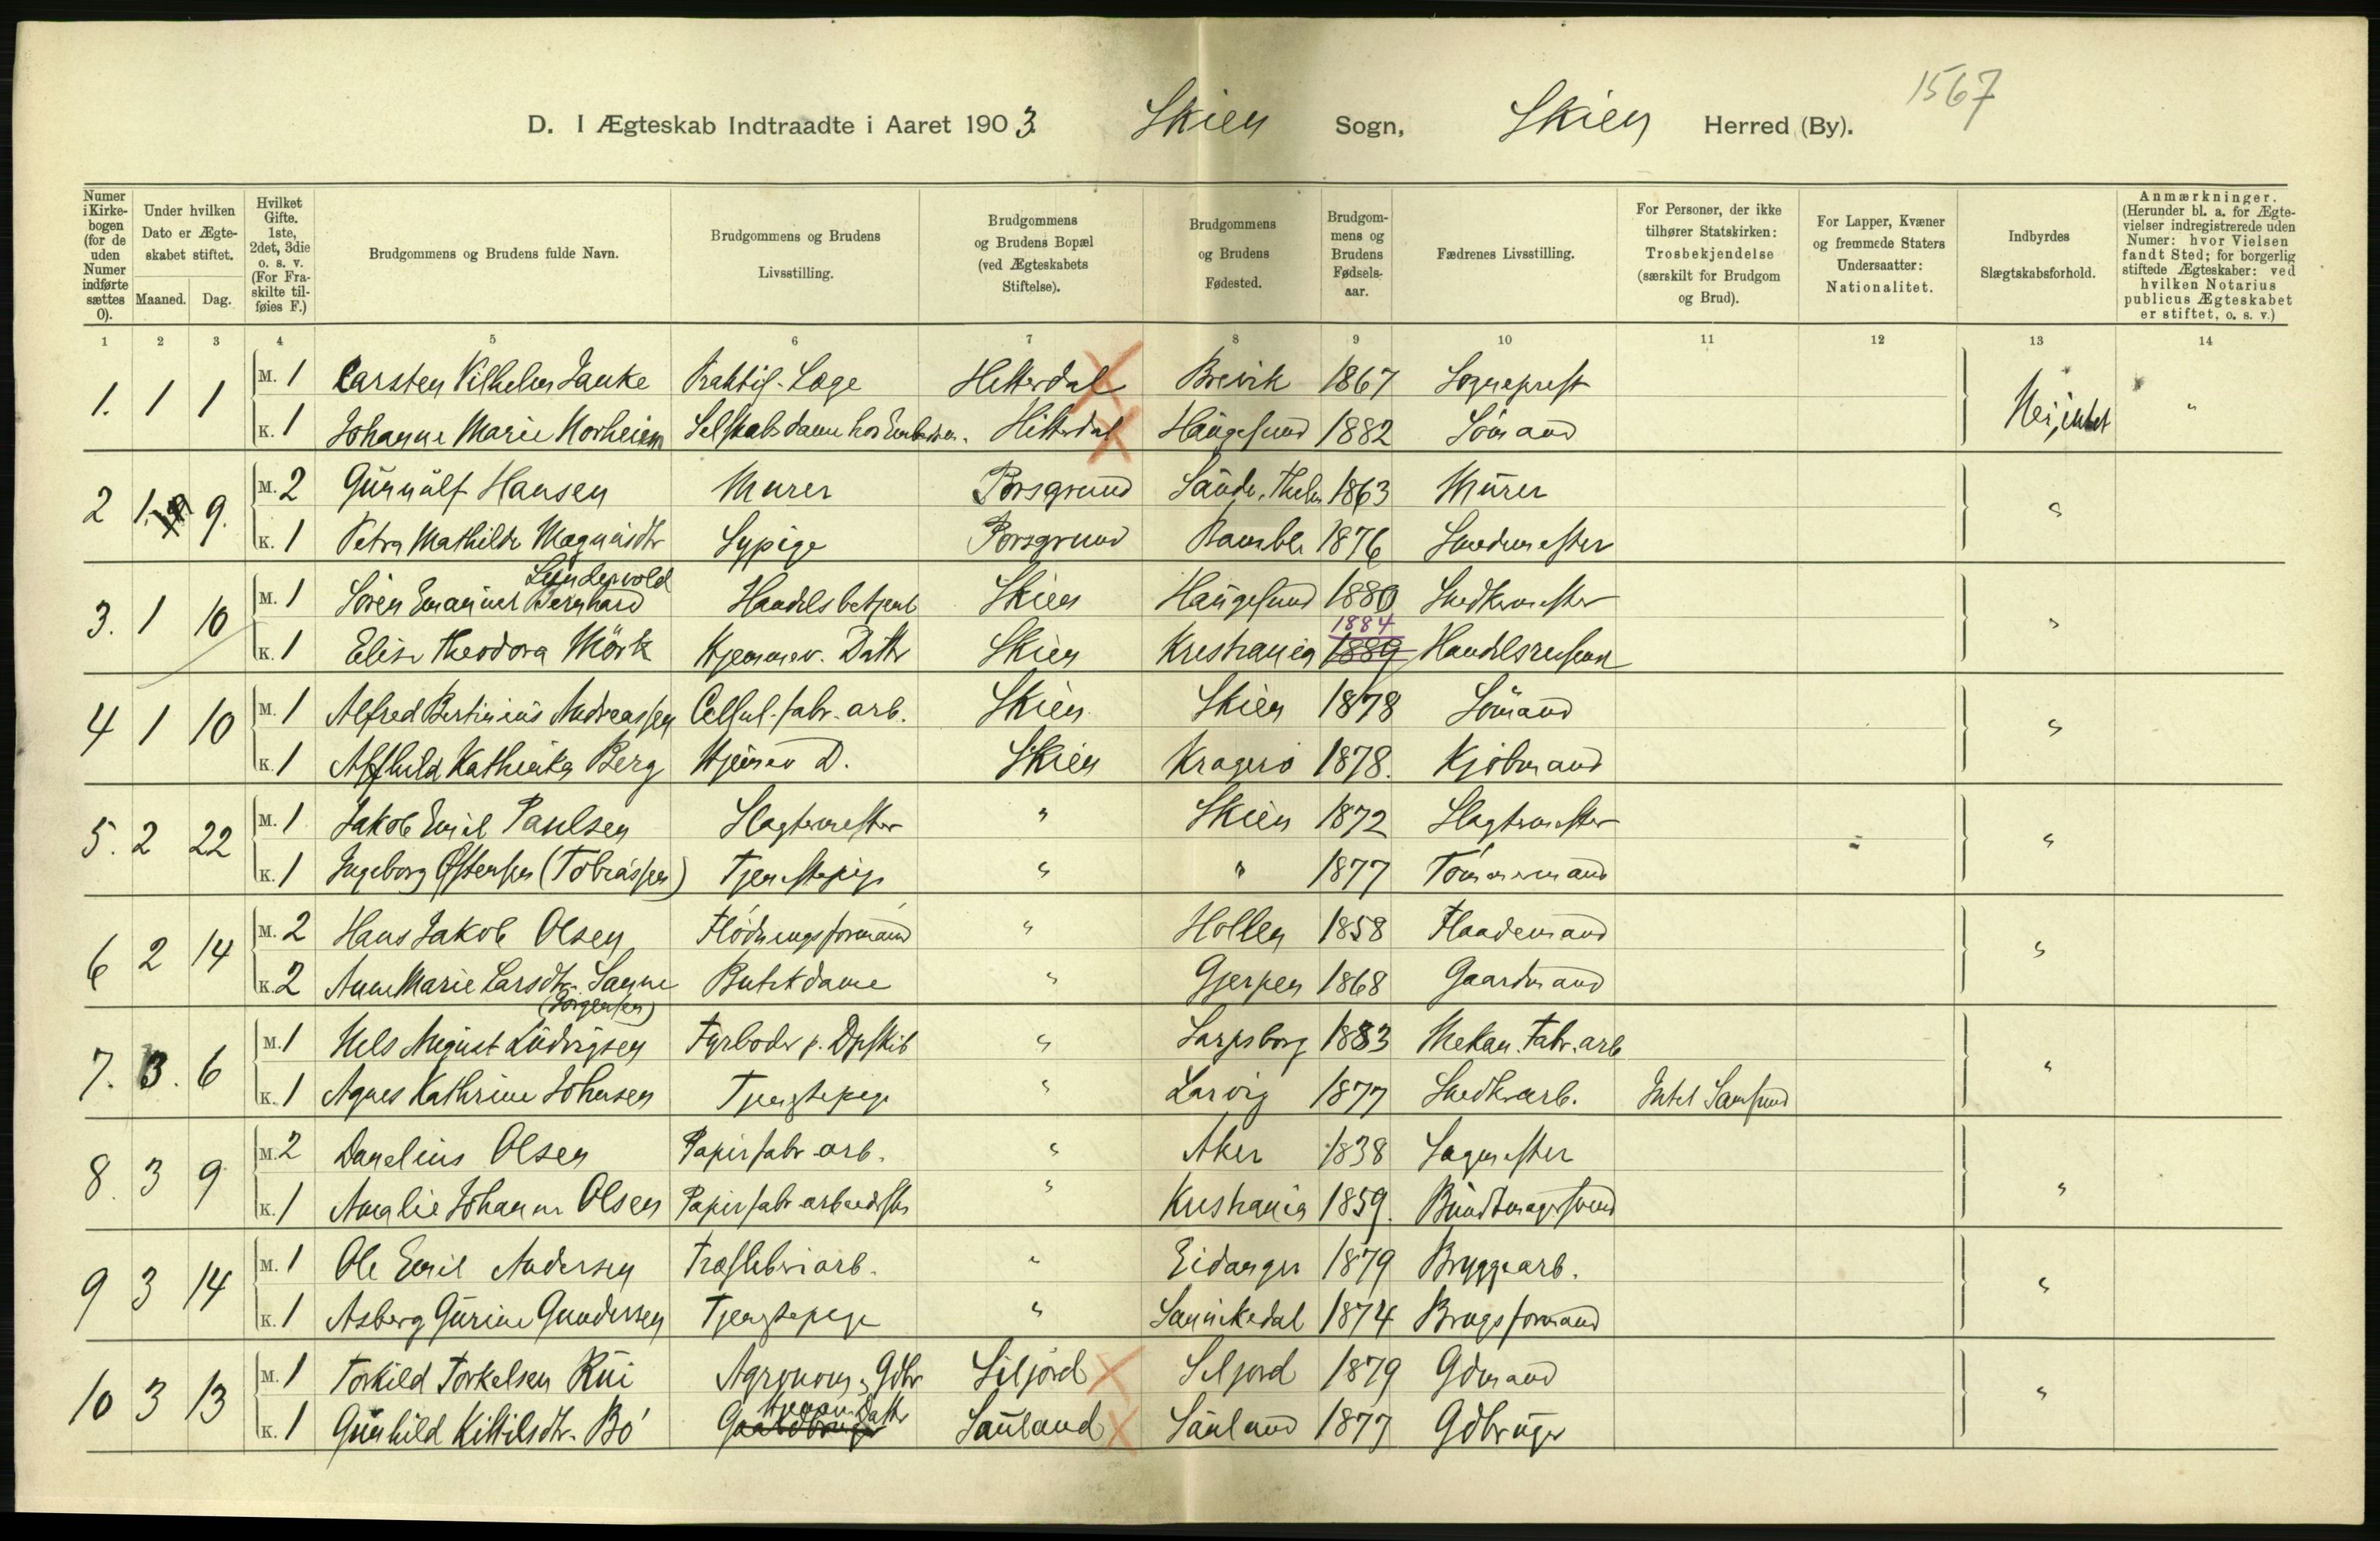 1567
D. I Ægteskab Indtraadte i Aaret 1903. Skien Sogn, Skien Herred (By).
Numer i Kirkebogen (for de uden Numer indførte sættes 0). | Under hvilken Dato er Ægteskabet stiftet. Maaned. Dag. | Hvilket Gifte. 1ste, 2det, 3die o. s. v. (For Fraskilte tilføies F.) | Brudgommens og Brudens fulde Navn. | Brudgommens og Brudens Livsstilling. | Brudgommens og Brudens Bopæl (ved Ægteskabets Stiftelse). | Brudgommens og Brudens Fødested. | Brudgommens og Brudens Fødselsaar. | Fædrenes Livsstilling. | For Personer, der ikke tilhører Statskirken: Trosbekjendelse (særskilt for Brudgom og Brud). | For Lapper, Kvæner og fremmede Staters Undersaatter: Nationalitet. | Indbyrdes Slægtskabsforhold. | Anmærkninger. (Herunder bl. a. for Ægtevielser indregistrerede uden Numer: hvor Vielsen fandt Sted; for borgerlig stiftede Ægteskaber: ved hvilken Notarius publicus Ægteskabet er stiftet, o. s. v.)
1 2 3 4 5 6 7 8 9 10 11 12 13 14
1. 1 1 M. 1 Carsten Vilhelm Janke Praktis. Læge Hetterdal Brevik 1867 Sogneprest Nei, intet "
K. 1 Johanne Marie Norheim Selskabsdame hos Hitterdal Haugesund 1882 Sömand
2 1. 9. M. 2 Gunnulf Hansen Murer Porsgrund Saude, Thelm 1863 Murer "
K. 1 Petra Mathilde Magnusdtr Sypige Porsgrund Bamble 1876 Smedmester
Lundervold
3. 1 10 M. 1 Sören Emanuel Bernhard Handelsbetjent Skien Haugesund 1880 Snedkermester "
1884
K. 1 Elise Theodora Mörk Hjemmev. Datter Skien Kristiania 1889 Handelsreisende
4 1 10 M. 1 Alfred Bertinius Andreassen Cellul. fabr. arb. Skien Skien 1878 Sömand "
K. 1 Alfhild Kathinka Berg Hjemmev D. Skien Kragerö 1878. Kjöbmand
5. 2 22 M. 1 Jakob Emil Paulsen Slagtermester " Skien 1872 Slagtermester "
K. 1 Ingeborg Østensen (Tobiassen) Tjenestepige " " 1877 Tömmermand
6 2 14 M. 2 Hans Jakob Olsen Flödningsformand " Hollen 1858 Flaademand "
K. 2 Anne Marie Larsdtr. Sanne Butikdame " Gjerpen 1868 Gaardmand
(Jörgensen)
7. 3. 6 M. 1 Nels August Ludvigsen Fyrböder p. Dpskib " Sarpsborg 1883 Mekan. Fabr. arb "
K. 1 Agnes Kathrine Johnsen Tjenstepige " Larvig 1877 Snedkerarb. Intet Samfund
8. 3 9 M. 2 Danelius Olsen Papirfabr. arb. " Aker 1838 Sagmester "
K. 1 Amalie Johanne Olsen Papirfabr. arbeiderske " Kristiania 1859. Bundtmagersvend
9 3 14 M. 1 Ole Emil Andersen Træsliberiarb. " Eidanger 1879 Bryggearb. "
K. 1 Asberg Gurine Gundersen Tjenstepige " Sannikedal 1874 Brugsformand
10 3 13 M. 1 Torkild Torkelsen Rui Agronom, Gdbr Siljord Seljord 1879 Gdmand "
Hjemmev. Datter
K. 1 Gunhild Kittilsdtr. Bö Gaardbruger Sauland Sauland 1877 Gdbruger